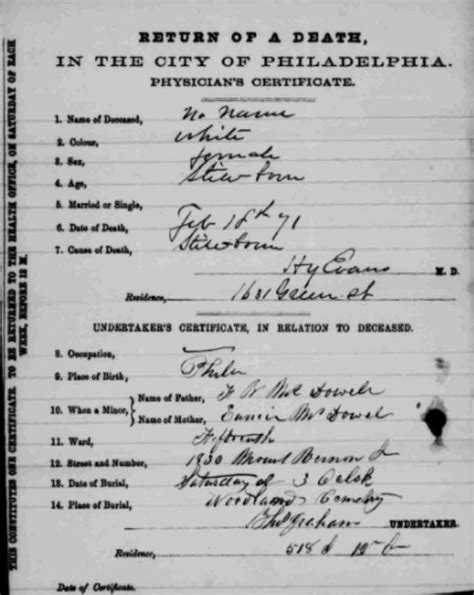 RETURN OF A DEATH,
IN THE CITY OF PHILADELPHIA.
PHYSICIAN'S CERTIFICATE.
1. Name of Deceased, No Name
2. Colour, White
3. Sex, female
4. Age, Still born
5. Married or Single,
6. Date of Death, Feb 18th 71
7. Cause of Death, Still born
Hy Evans M. D.
Residence, 1631 Green St
UNDERTAKER'S CERTIFICATE, IN RELATION TO DECEASED.
8. Occupation,
9. Place of Birth, Phila
10. When a Minor, Name of Father, W Mc Dowell
Name of Mother, McDowel
11. Ward, Fifteenth
12. Street and Number, 1830 Mount Vernon St
13. Date of Burial, Saturday 3 Oclok
14. Place of Burial, Woodlands Cemetry
Graham UNDERTAKER.
Residence, 518
Date of Certificate.
THIS CONSTITUTES ONE CERTIFICATE. TO BE RETURNED TO THE HEALTH OFFICE, ON SATURDAY OF EACH
WEEK, BEFORE 12 M.